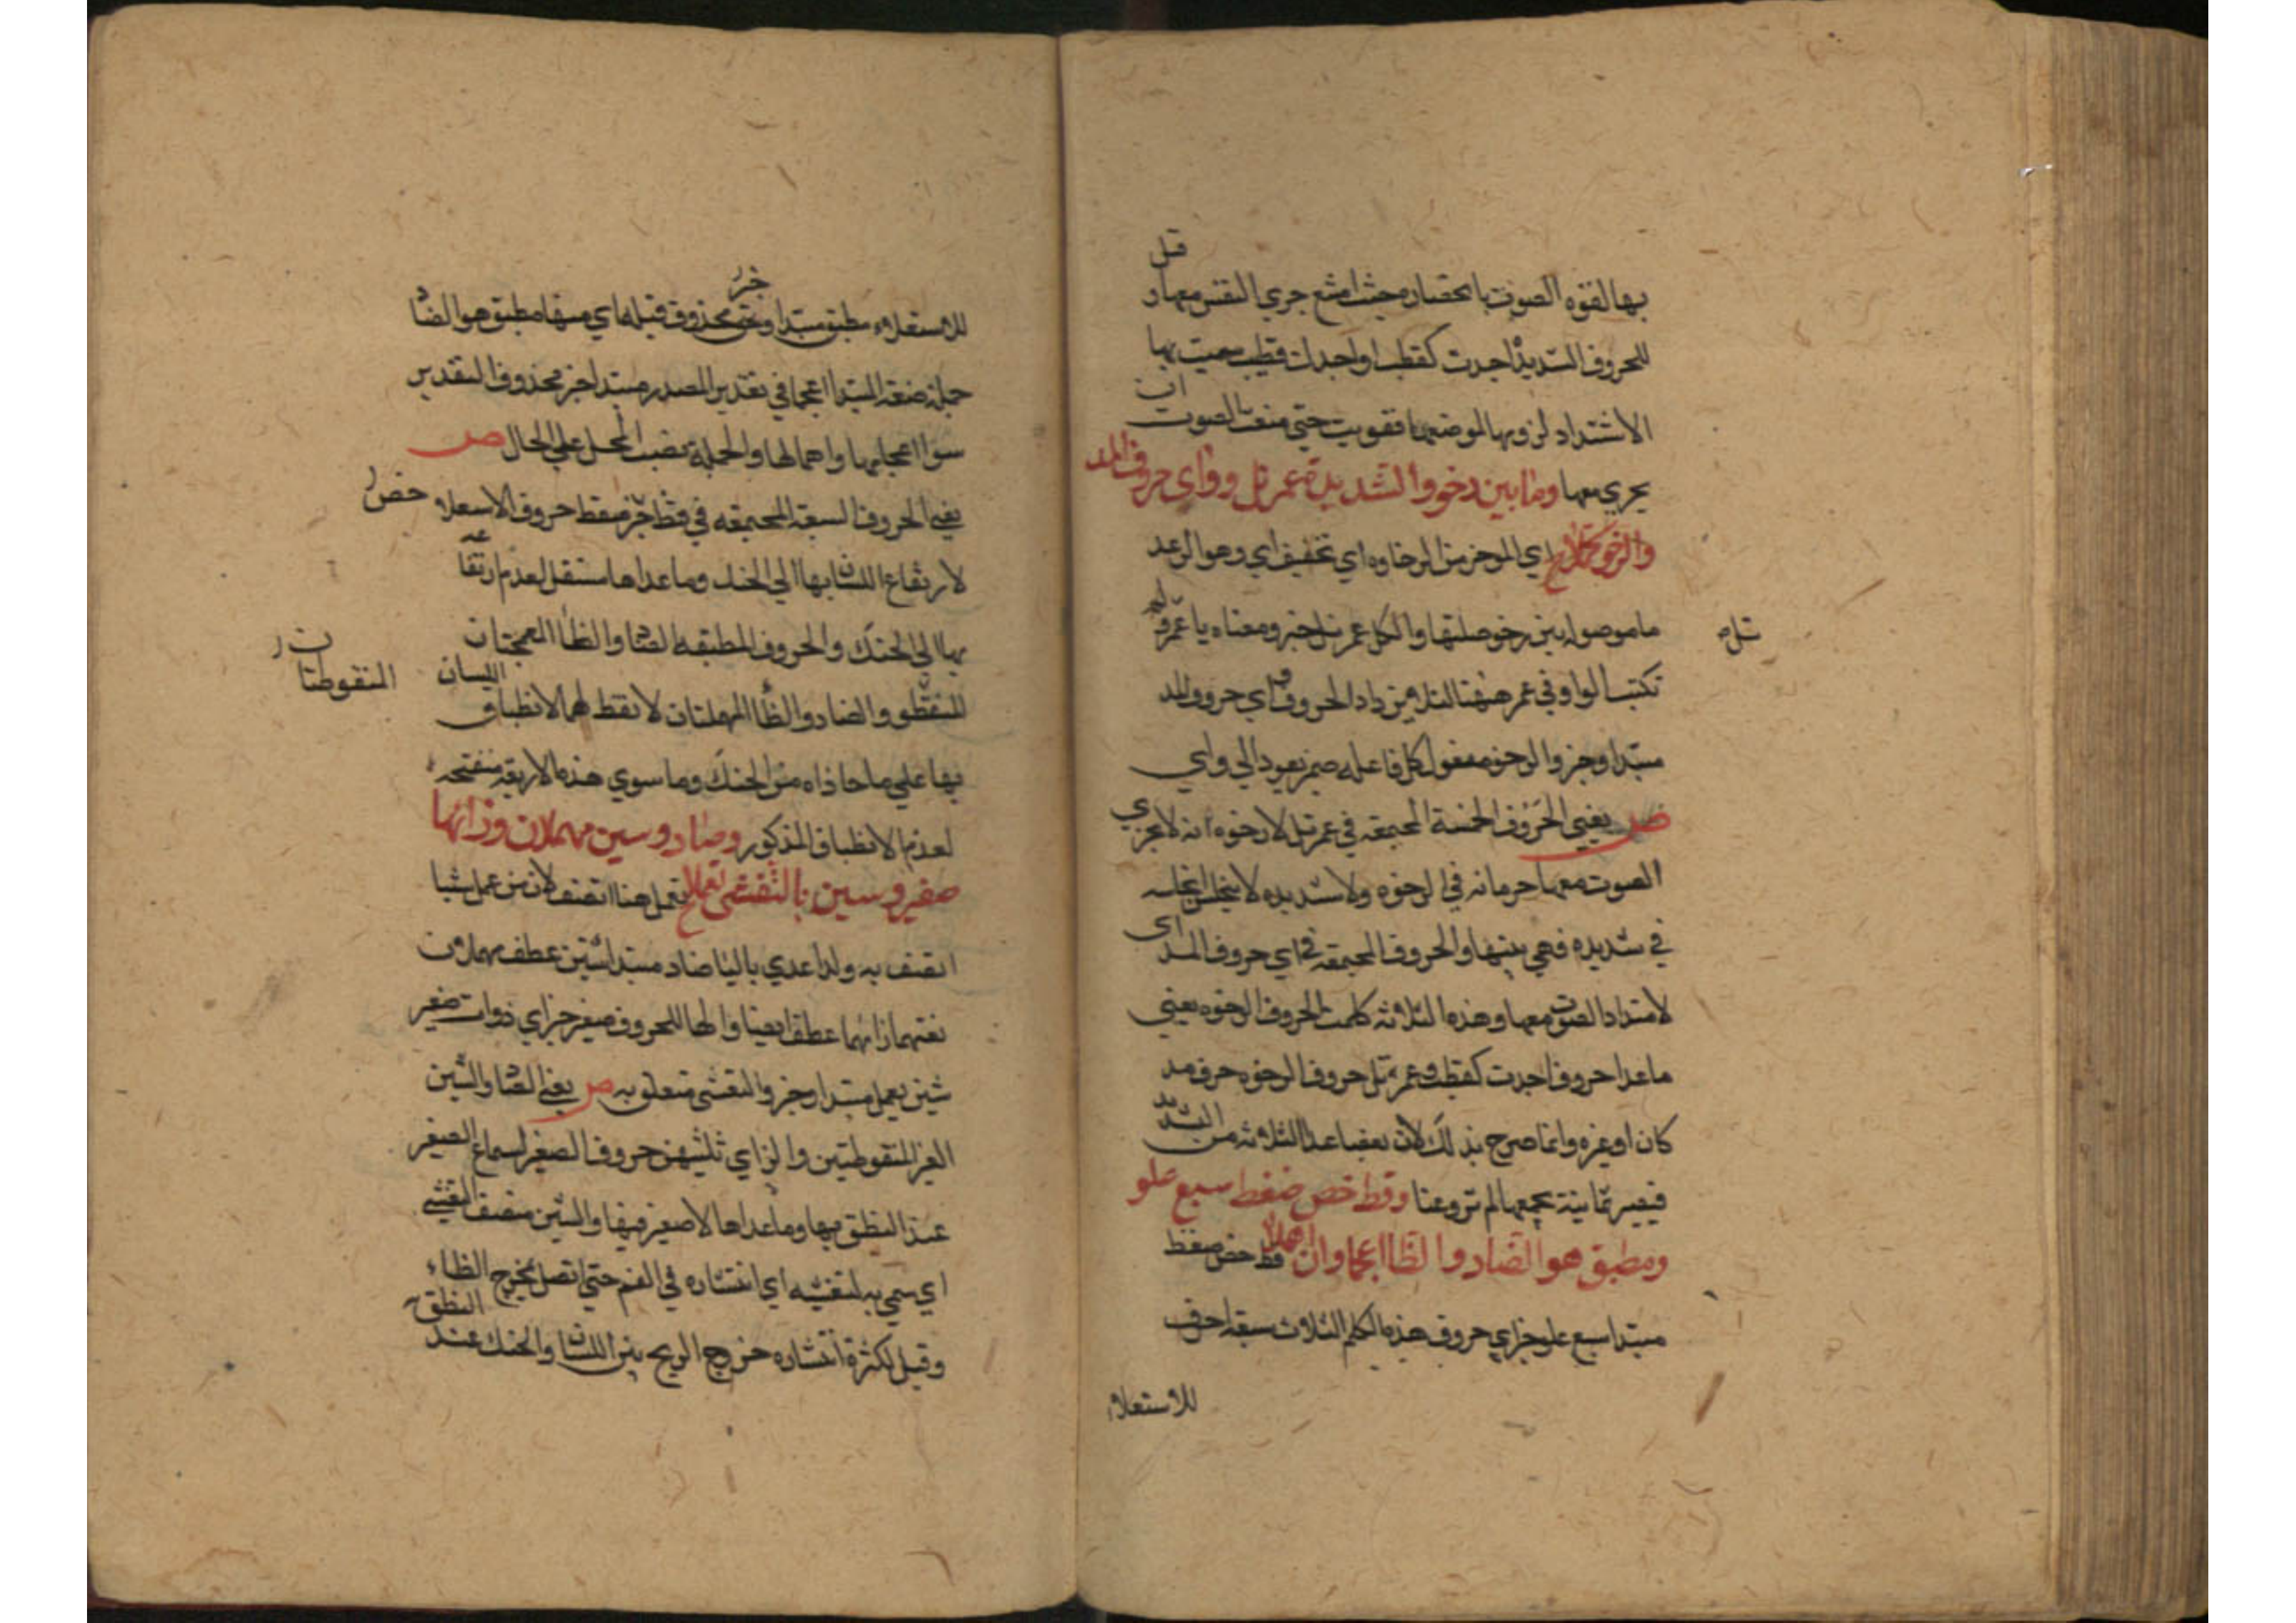 قل
بها لقوه الصوت بانحصاره حيث امتنع جري النفس معها و
للحروف الشديدْ اجدت كقطب او اجدات قطب سميت بها
الاشتداد لزومها لموضعها فقويت حتي منعت الصوت ان
يجري معها وما بين رخو والشديدة عمر نل وواي حروف المد
والرخو كملا اي الموخر من الرخاوه اي تخفيف اي وهو الوعد
ما موصوله بين رخو صلتها والكل عمر نل خبر ومعناه يا عمرو
تكتب الواو في عمر هنا حروف اي حروف المد
مبتدا وخبر والرخو مفعول كل فاعله ضمير يعود الي واي
ص يعني الحروف الخمسة المجتمعه في عمر نل لا رخوه انه لا يجري
الصوت معها جريانه في الرخوه ولا شديده لا ينحبس انحباسه
في شديده فهي بينهما والحروف المجتمعه في اي حروف المد
لامتداد الصوت معها وهذه الثلاثه كملت الحروف الرخوه يعني
ما عدا حروف اجدت كقطب وعمر نل حروف الرخوه حرف مد
كان او غيره وانما صرح بذلك لان بعضا عد الثلاثه من الشديد
فيصير ثمانية يجمعها لم يروعنا وقظ خص ضغط سبع علو
ومطبق هو الضاد والظا اعجما وان اهملا قظ خص ضغط
مبتدا سبع علو خبر اي حروف هذه الكلم الثلاث سبعة احرف
للاستعلاء
للاستعلاء مطبق مبتدا وخبر محذوف قبله اي منها مطبق هو الضاد
جملة صفة المبتدا اعجما في تقدير المصدر مبتدا خبر محذوف التقدير
سوا اعجامها واهمالها والجملة نصب المحل علي الحال ص
يعني الحروف السبعة المجتمعه في قظ خص ضغط حروف الاستعلاء
لارتفاع اللسان بها الي الحنك وما عداها مستفل لعدم ارتفاعه
بها الي الحنك والحروف المطبقه الضاد والظا المعجمتان
المنقوطتان
والصاد والطا المهملتان لا نقط لهما لانطباق اللسان
بها علي ما حاذاه من الحنك وما سوي هذه الاربعة منفتحه
لعدم الانطباق المذكور وصاد وسين مهملان وزايها
صفير وشين بالتفشي تعملا تعمل هنا اتصف لان من عمل شيا
اتصف به ولذا عدي بالبا صاد مبتدا سين عطف مهملان
نعتهما زايهما عطف ايضا والها للحروف صفير خبر اي ذوات صفير
شين يعمل مبتدا وخبر والتفشي متعلق به ص يعني الصاد والسين
الغير المنقوطتين والزاي ثلثهن حروف الصفير لسماع الصفير
عند النطق بها وما عداها لا صفير فيها والشين متصف بالتفشي
اي سمي به لتفشيه اي انتشاره في الفم حتي اتصل بمخرج الظاء
وقيل لكثرة انتشاره خروج الريح بين اللسان والحنك عند النطق